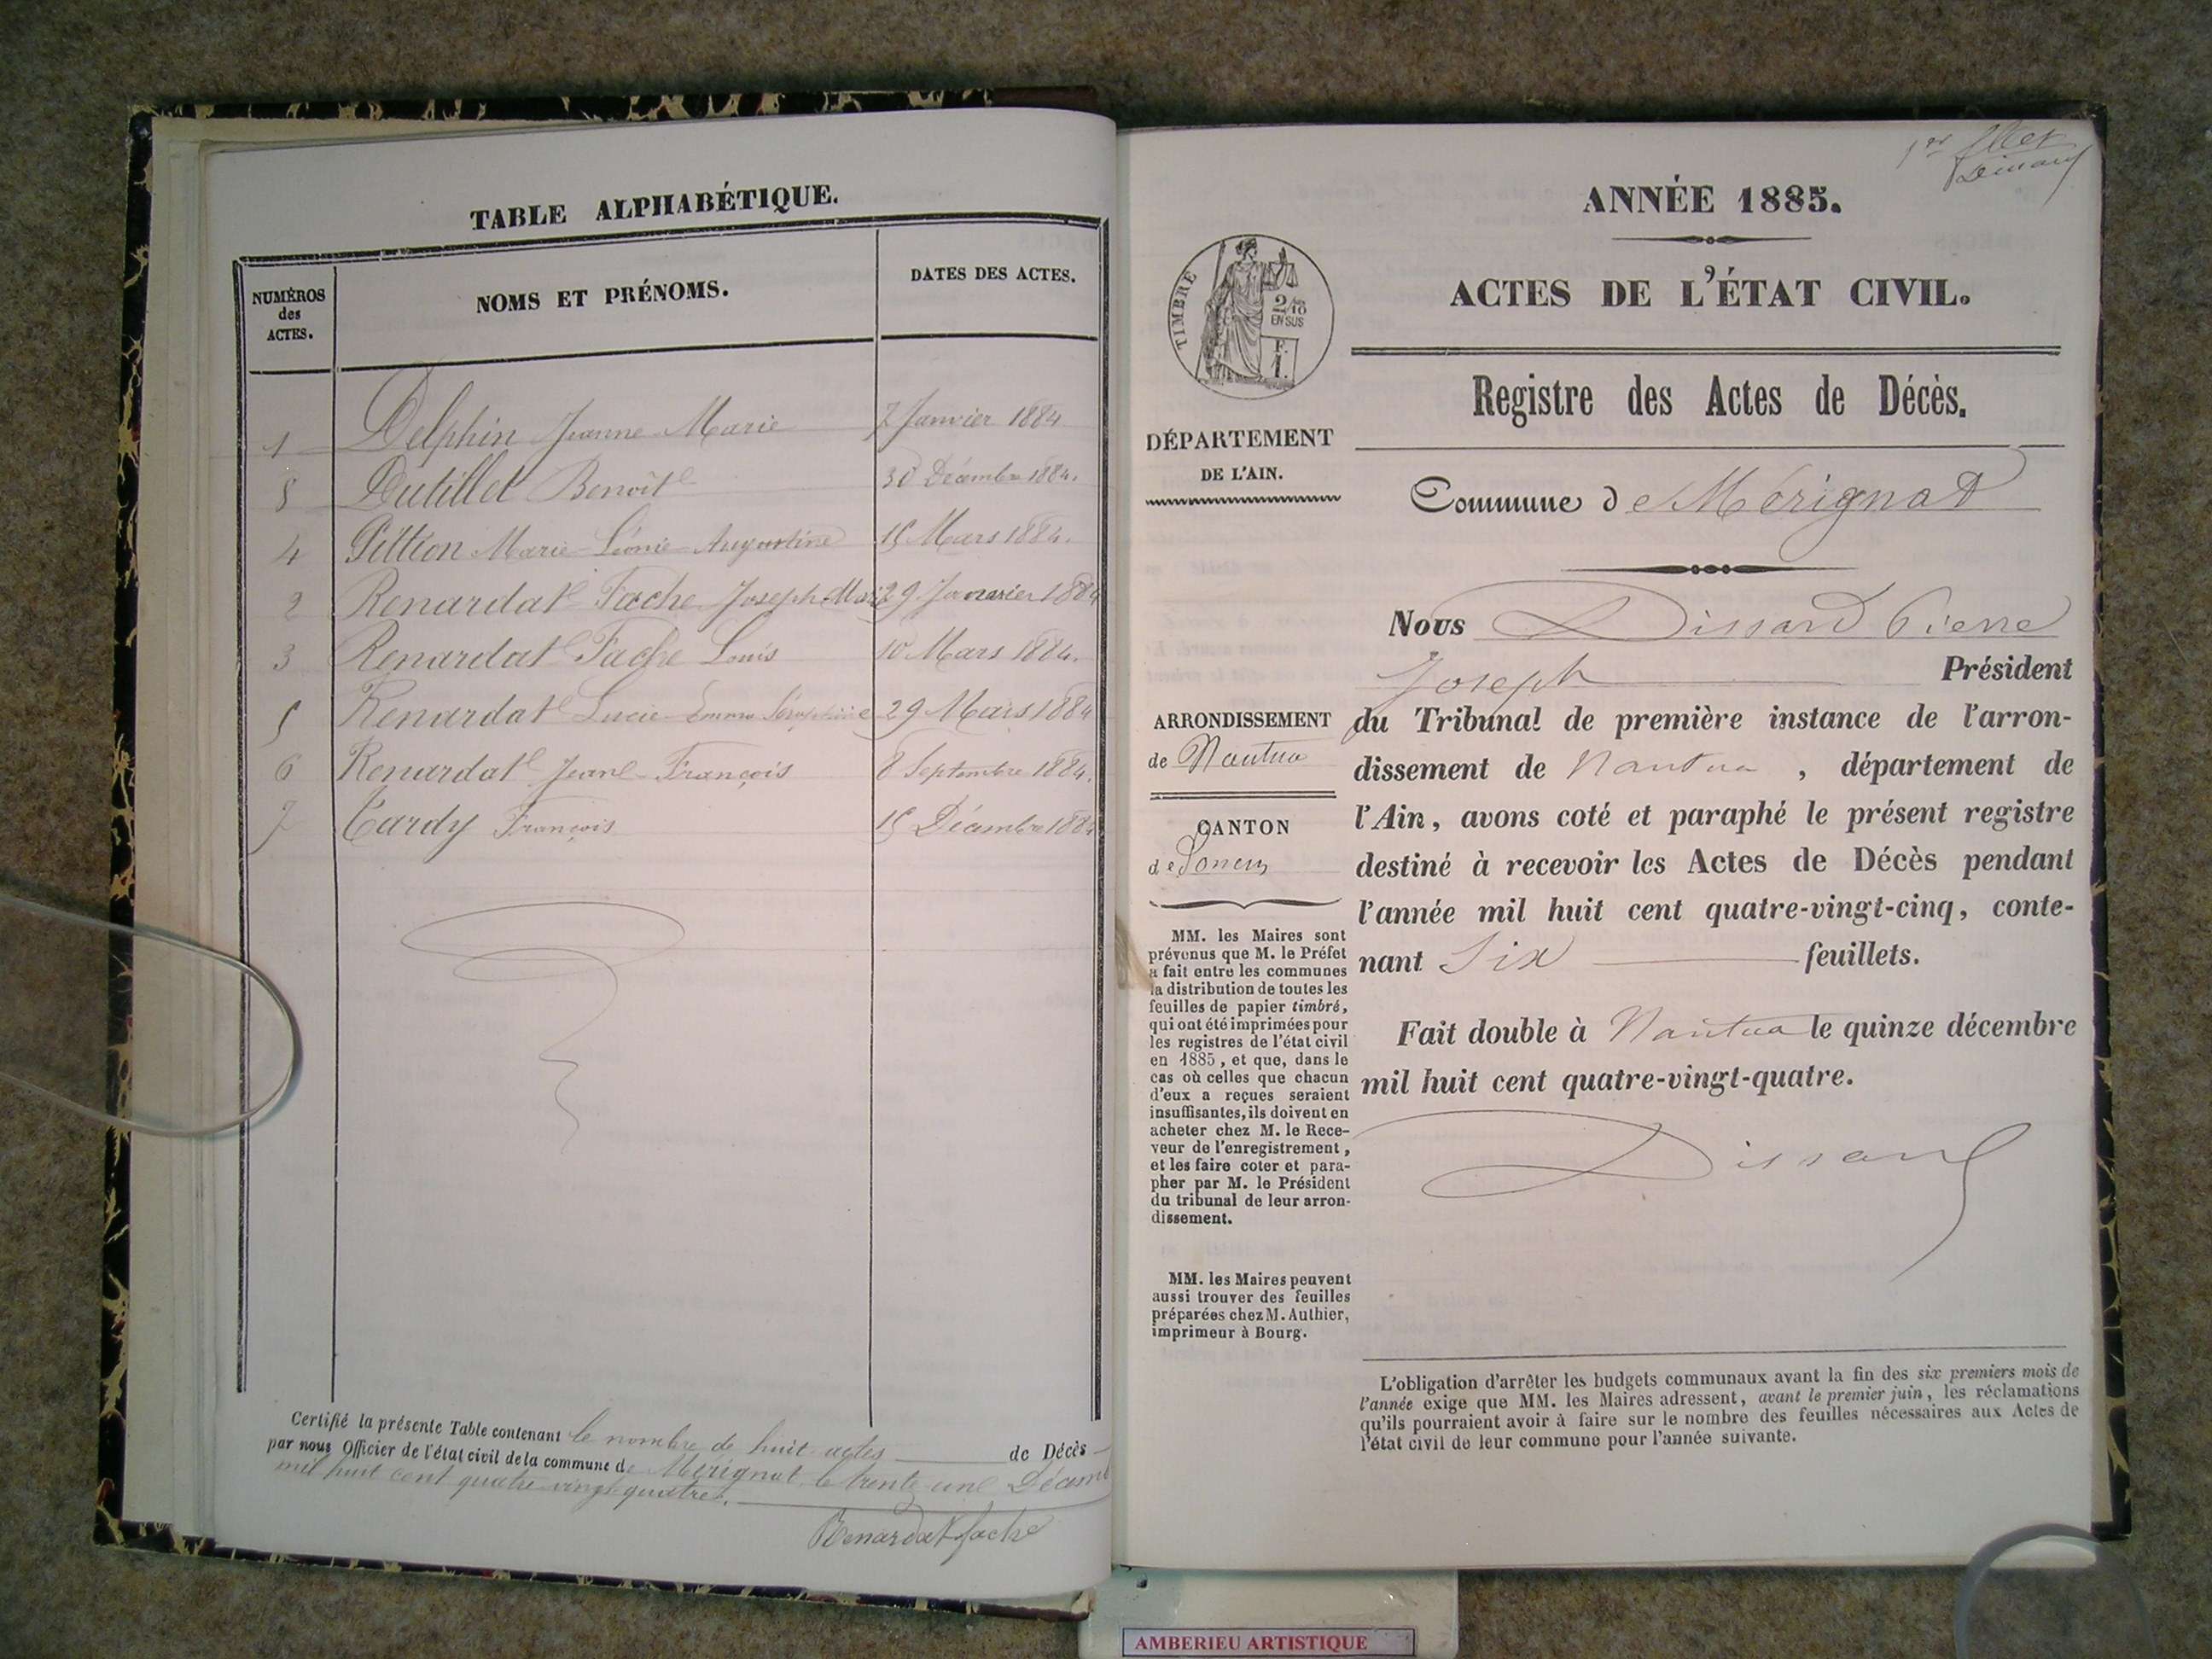 TABLE ALPHABÉTIQUE.
NUMÉROS
des
ACTES.
NOMS ET PRÉNOMS.
DATES DES ACTES.
1 Delphin Jeanne Marie 7 Janvier 1884
8 Dutillet Benoît 30 Décembre 1884.
4 Pittion Marie Léonie Augustine 15 Mars 1884.
2 Renardat Fache Joseph Marie 29 Janvier 1884
3 Renardat Fache Louis 10 Mars 1884.
5 Renardat Lucie Emma Séraphine 29 Mars 1884
6 Renardat Jean François 8 Septembre 1884.
7 Tardy François 15 Décembre 1884
Certifié la présente Table contenant le nombre de huit actes de Décès
par nous Officier de l'état civil de la commune de Mérignat, le trente une Décemb
mil huit cent quatre vingt quatre.
Renardat fache
1er
Dissard
ANNÉE 1885.
ACTES DE L'ÉTAT CIVIL.
TIMBRE
2/10
EN SUS
F.
1.
Registre des Actes de Décès.
DÉPARTEMENT
DE L'AIN.
Commune de Mérignat
Nous Dissard Pierre
Joseph Président
ARRONDISSEMENT
de Nantua
CANTON
de Poncin
du Tribunal de première instance de l'arron-
dissement de Nantua, département de
l'Ain, avons coté et paraphé le présent registre
destiné à recevoir les Actes de Décès pendant
l'année mil huit cent quatre-vingt-cinq, conte-
nant Six feuillets.
Fait double à Nantua le quinze décembre
mil huit cent quatre-vingt-quatre.
Dissard
MM. les Maires sont
prévenus que M. le Préfet
a fait entre les communes
la distribution de toutes les
feuilles de papier timbré,
qui ont été imprimées pour
les registres de l'état civil
en 1885, et que, dans le
cas où celles que chacun
d'eux a reçues seraient
insuffisantes, ils doivent en
acheter chez M. le Rece-
veur de l'enregistrement,
et les faire coter et para-
pher par M. le Président
du tribunal de leur arron-
dissement.
MM. les Maires peuvent
aussi trouver des feuilles
préparées chez M. Authier,
imprimeur à Bourg.
L'obligation d'arrêter les budgets communaux avant la fin des six premiers mois de
l'année exige que MM. les Maires adressent, avant le premier juin, les réclamations
qu'ils pourraient avoir à faire sur le nombre des feuilles nécessaires aux Actes de
l'état civil de leur commune pour l'année suivante.
AMBERIEU ARTISTIQUE